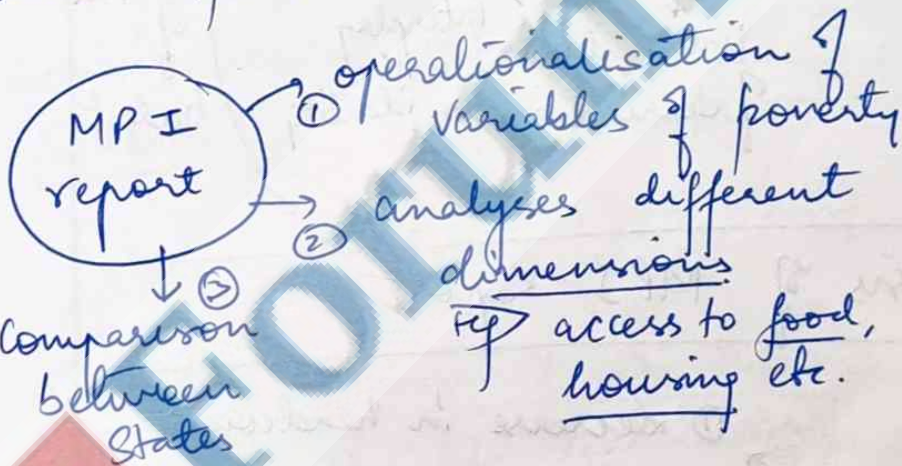 MPI
report
① operationalisation of
variables of poverty
② analyses different
dimensions
eg access to food,
housing etc.
③
Comparison
between
States
Forum